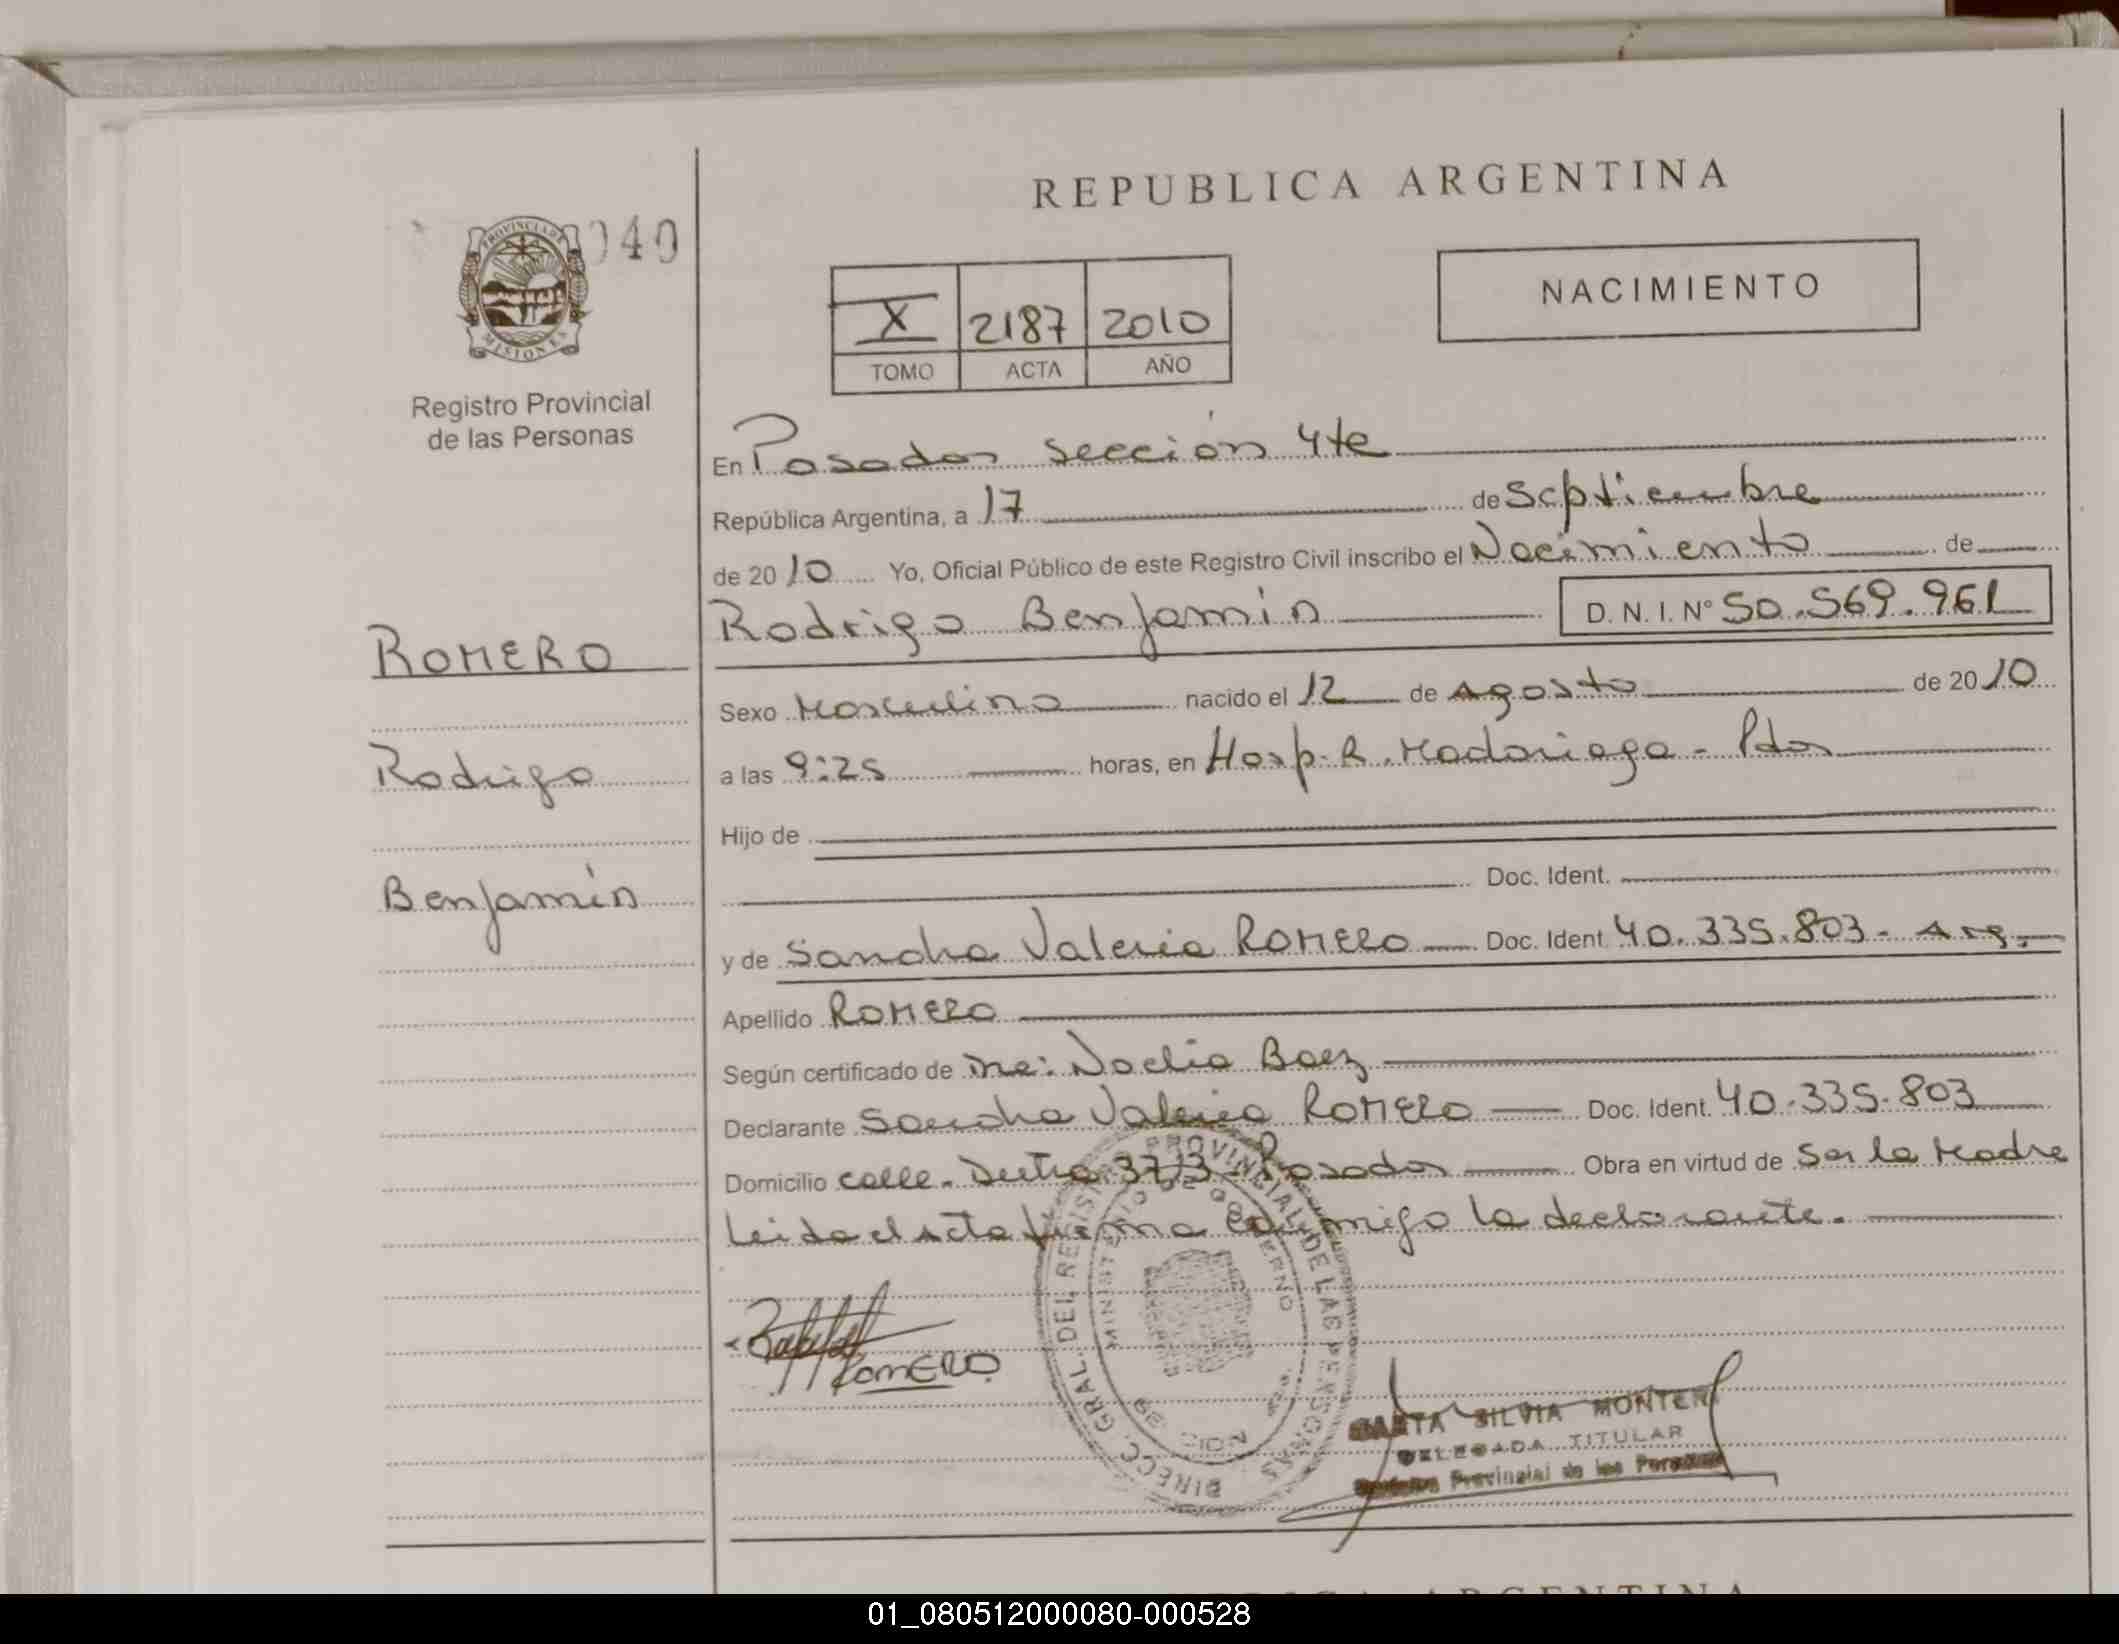 REPUBLICA ARGENTINA
040
PROVINCIA DE
MISIONES
Registro Provincial
de las Personas
X 2187 2010
TOMO ACTA AÑO
NACIMIENTO
En Posadas sección 4ta
República Argentina, a 17 de Septiembre
de 2010 Yo, Oficial Público de este Registro Civil inscribo el Nacimiento de
Rodrigo Benjamín D. N. I. Nº 50.569.961
ROMERO
Rodrigo
Benjamín
Sexo Masculino nacido el 12 de Agosto de 2010
a las 9:25 horas, en Hosp. R. Madariaga - Pdas
Hijo de
Doc. Ident.
y de Sandra Valeria ROMERO Doc. Ident. 40.335.803- Arg.
Apellido ROMERO
Según certificado de Dra: Noelia Baez
Declarante Sandra Valeria ROMERO Doc. Ident. 40.335.803
Domicilio calle. 3713 - Posadas Obra en virtud de Ser la Madre
Leida el Acta firma conmigo la declarante.
ROMERO
DIRECC. GRAL. DEL REGIST PROVINCIAL DE LAS PERSONAS
MINISTERIO DE GOBIERNO
SILVIA
DELEGADA TITULAR
Provincial de las Personas
REPUBLICA ARGENTINA
01_080512000080-000528